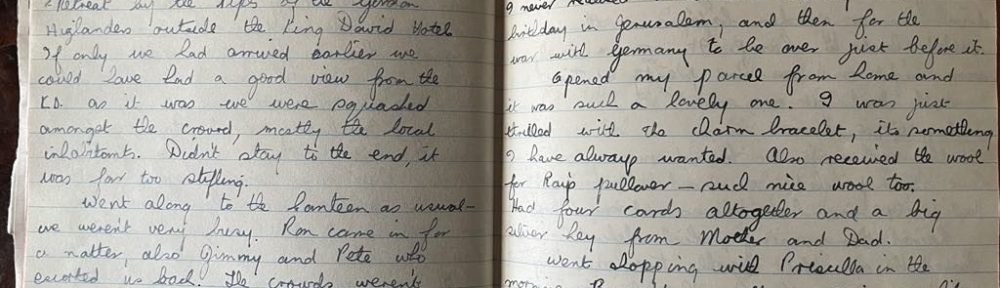 Retreat by the
Higlanders outside the King David Hotel
If only we had arrived earlier we
could have had a good view from the
K.D. as it was we were squashed
amongst the crowd, mostly the local
inhabitants. Didn't stay to the end, it
was far too stifling.
Went along to the Canteen as usual -
we weren't very busy. Ron came in for
a natter, also Jimmy and Pete who
escorted us back. The crowds weren't
I never
birthday in Jerusalem, and then for the
war with Germany to be over just before it.
Opened my parcel from home and
it was such a lovely one. I was just
thrilled with the charm bracelet, its something
I have always wanted. Also received the wool
for Ray's pullover - such nice wool too.
Had four cards altogether and a big
silver key from Mother and Dad.
Went shopping with Priscilla in the